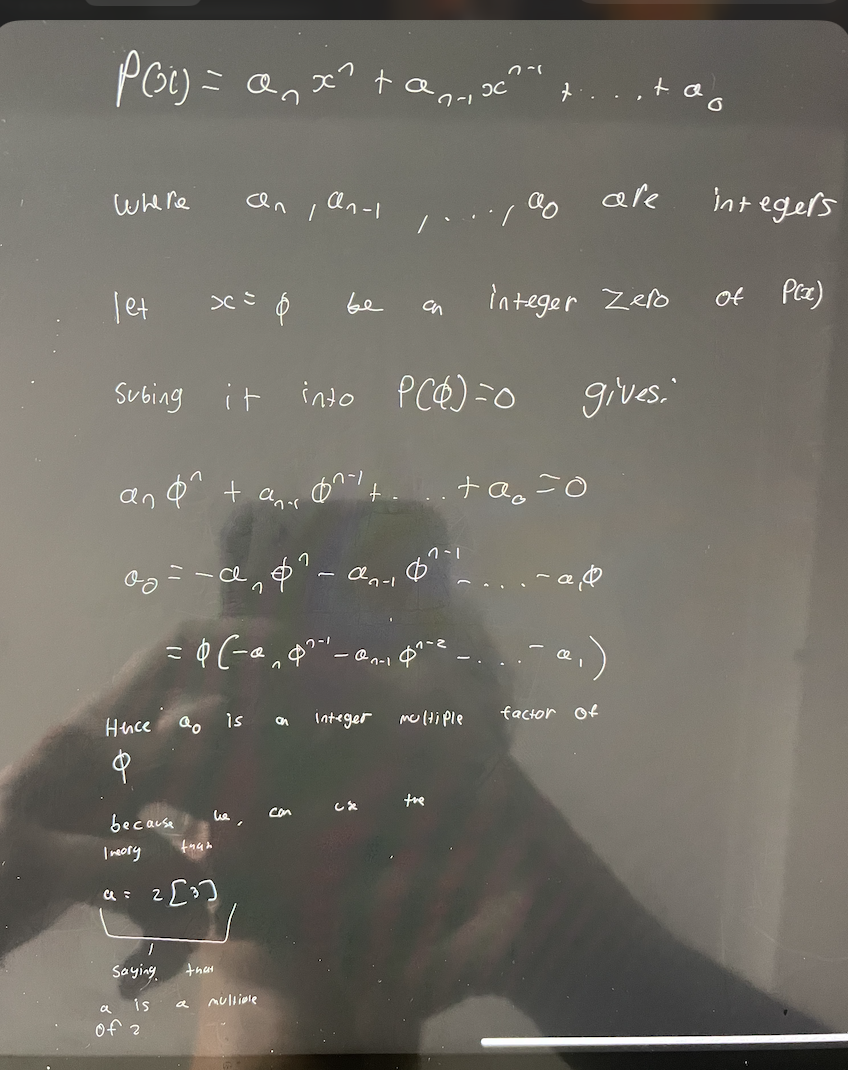 P(x) = aₙxⁿ + aₙ₋₁xⁿ⁻¹ + .... + a₀
where aₙ, aₙ₋₁, ...., a₀ are integers
let x = ϕ be an integer zero of P(x)
Subing it into P(ϕ)=0 gives:
aₙϕⁿ + aₙ₋₁ϕⁿ⁻¹ + .... + a₀ = 0
a₀ = -aₙϕⁿ - aₙ₋₁ϕⁿ⁻¹ - .... - a₁ϕ
= ϕ(-aₙϕⁿ⁻¹ - aₙ₋₁ϕⁿ⁻² - .... - a₁)
Hence a₀ is an integer multiple factor of
ϕ
because we, can use the
theory that
a = 2[3]
saying that
a is a multiple
of 2